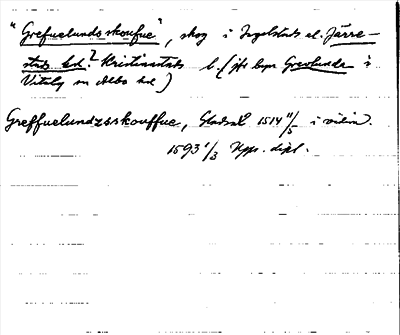 "Grefuelundsskoufue", skog i Ingelstads el. Järre-
stads hd.? Kristianstads l. (jfr byn Grevlunda i
Vitaby sn Albo hd)
Greffuelundzsskouffue, 1514 11/5 i vidim.
1593 1/3 Upps. dipl.